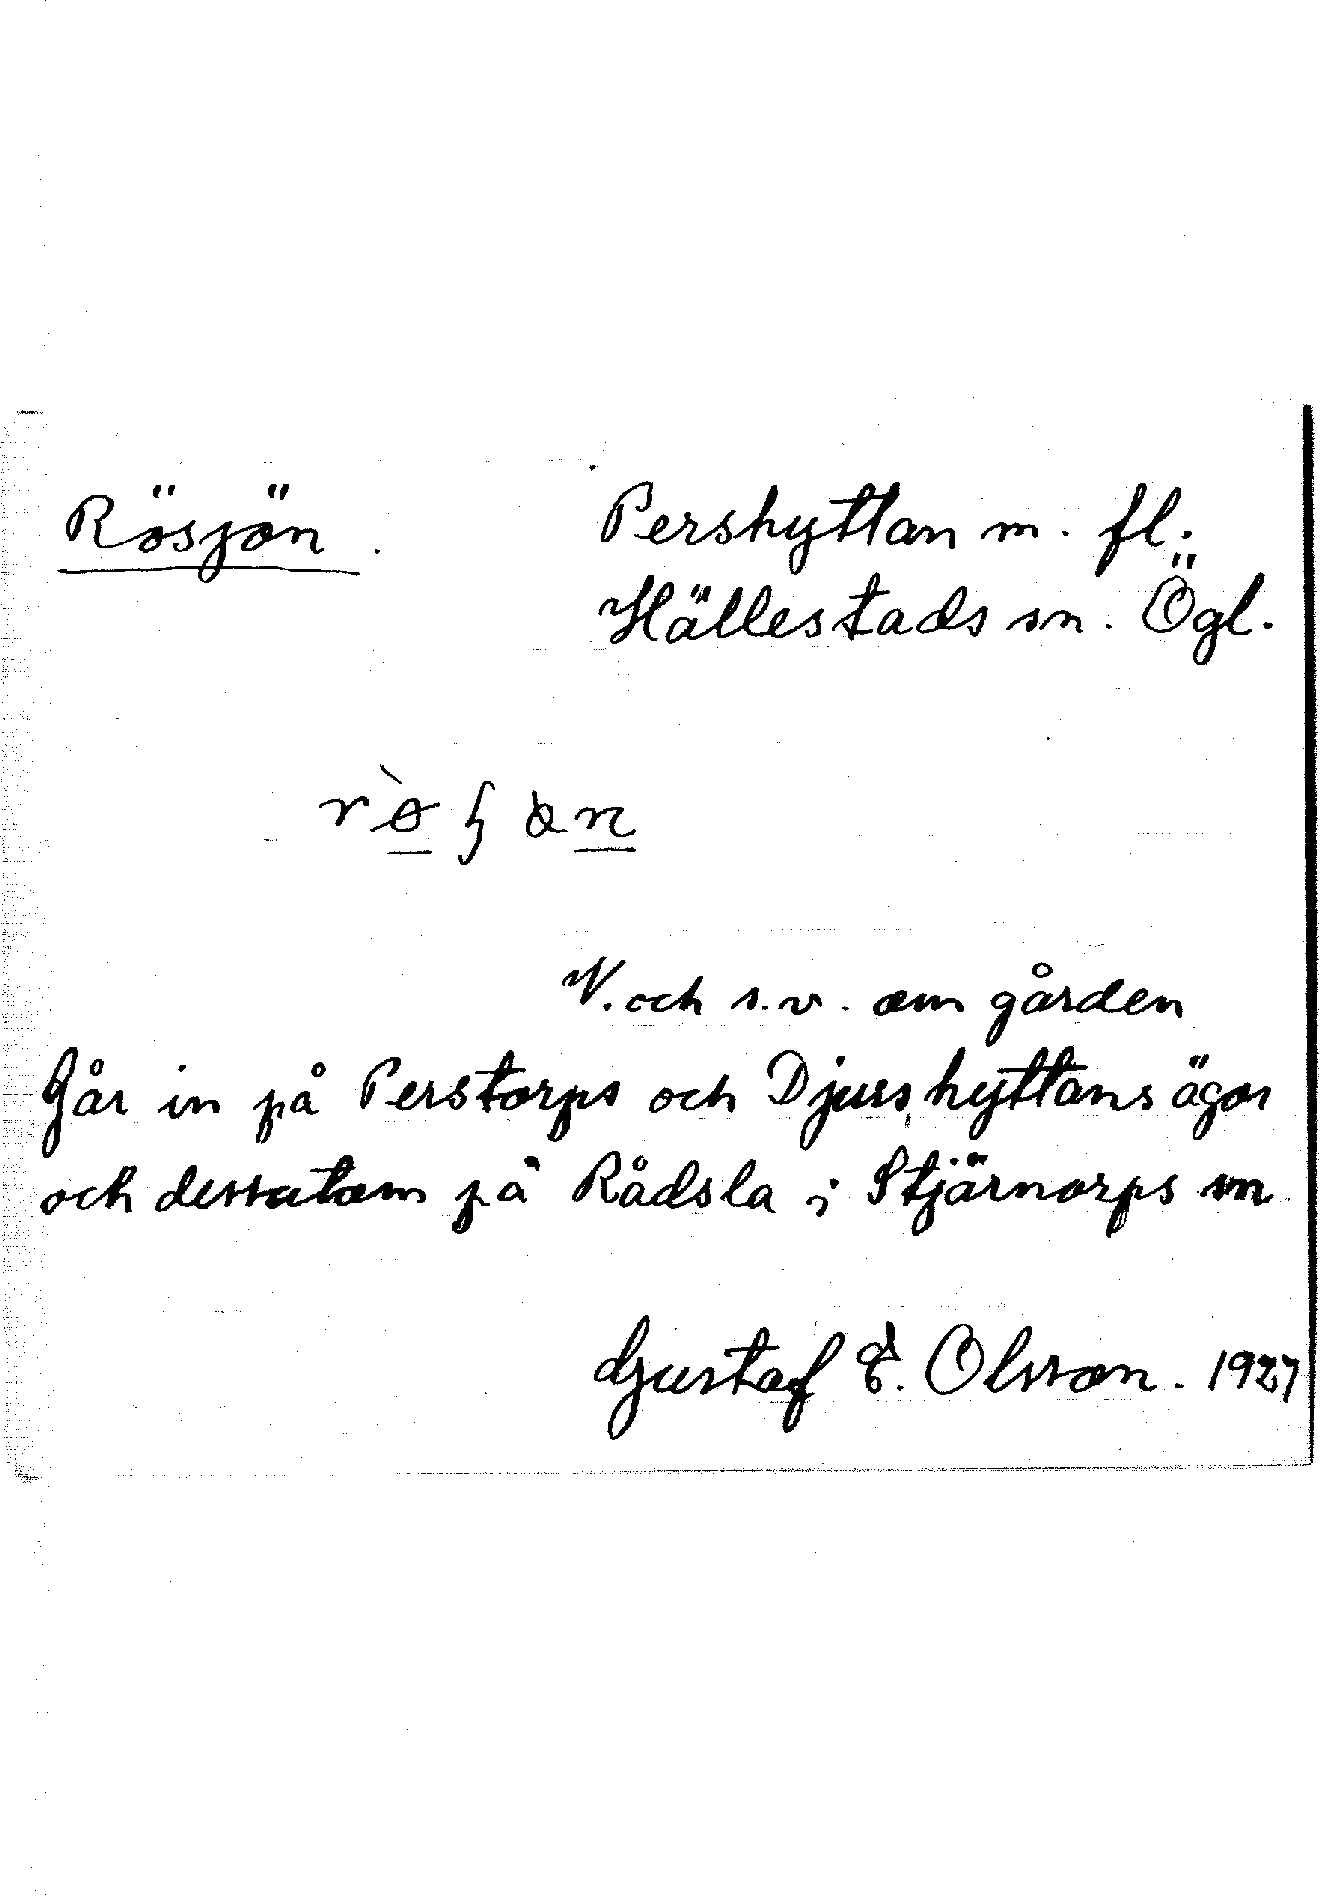 Rösjön.
Pershyttan m. fl.
Hällestads sn. Ögl.
V. och s.v. om gården
Går in på Perstorps och Djurshyttans ägor
och dessutom på Rådsla i Stjärnorps sn
Gustaf E. Olsson. 1927